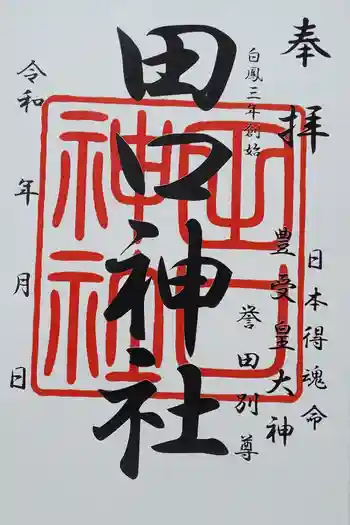 奉拝
日本得魂命
豊受皇大神
誉田別尊
白鳳三年創始
田口神社
令和 年 月 日
田口神社